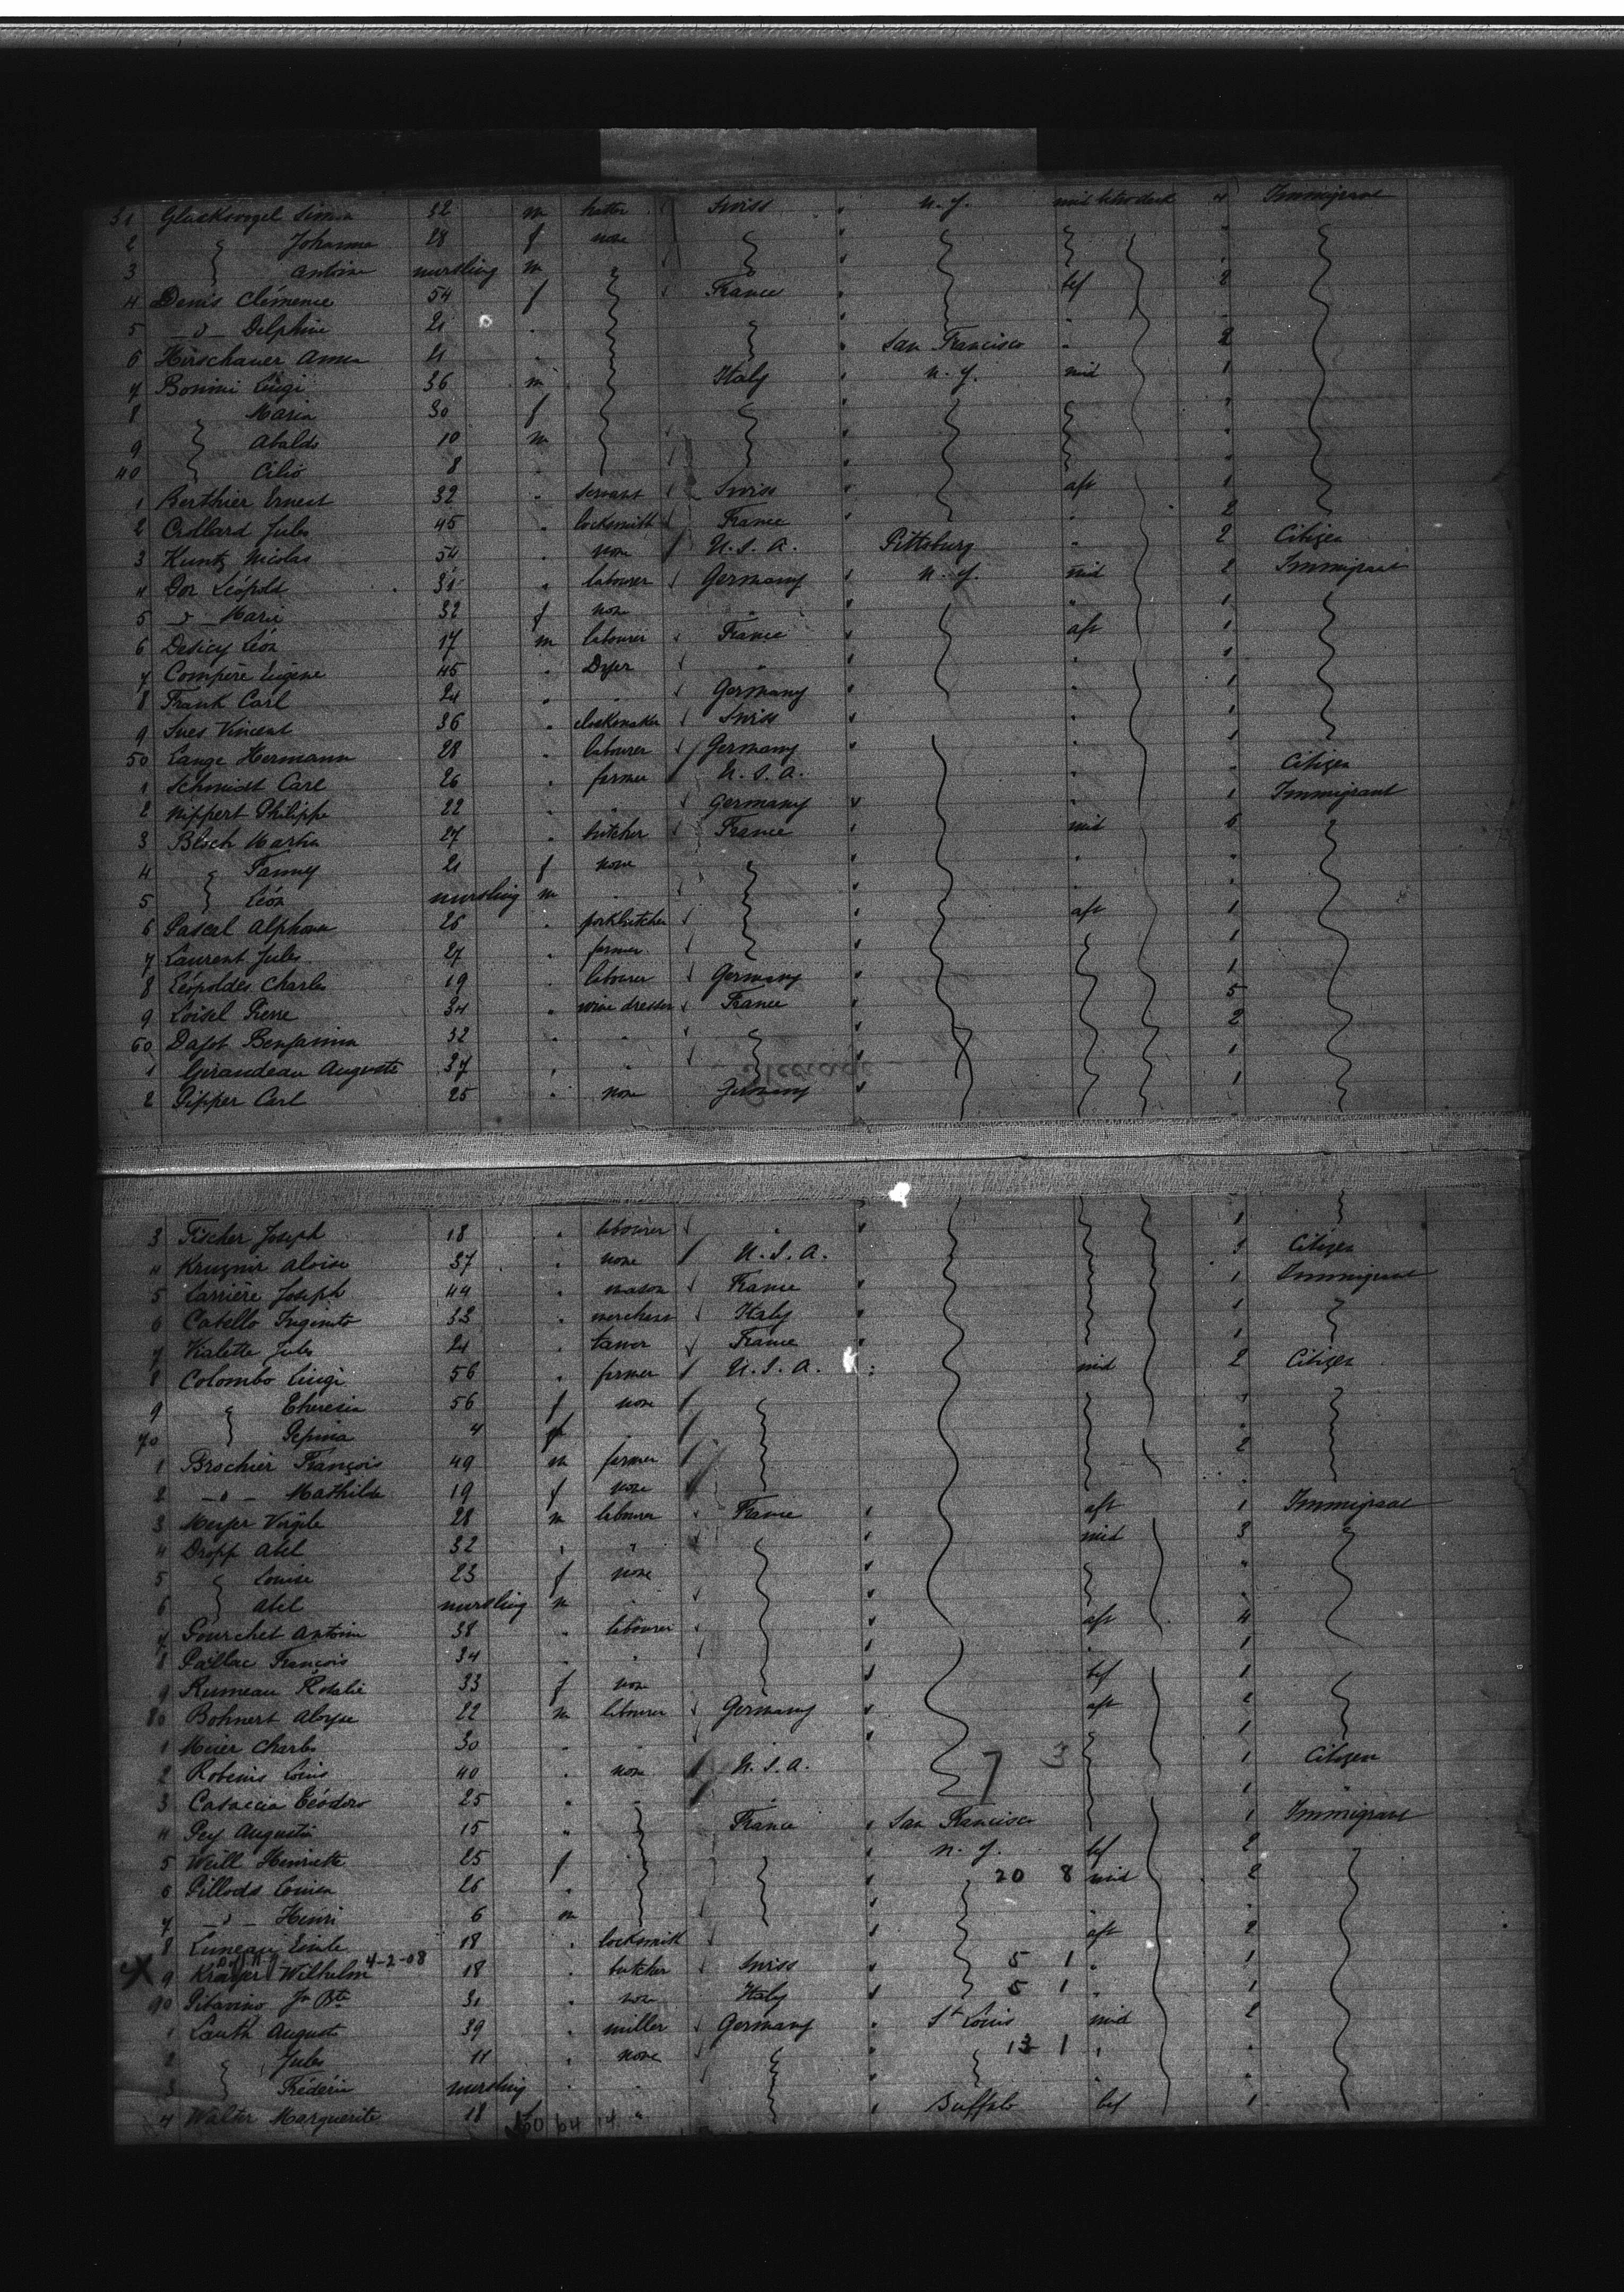 31 Glucksvogel Simon 32 m hatter Swiss " N.Y. mid betw deck 4 Immigrant
2 " Johanna 28 f none
3 " Antoine nursling m
4 Denis Clémence 54 f France bef 2
5 -d- Delphine 21 "
6 Hirschauer Anna 21 " San Francisco " 2
7 Bonini Luigi 36 m Italy N.Y. mid 1
8 " Maria 30 f
9 Abaldo 10 m
40 Cilio 8 "
1 Berthier Ernest 32 " servant Swiss aft 1
2 Crollard Jules 45 " locksmith France " 2
3 Kuntz Nicolas 54 " none U.S.A. Pittsburg " 2 Citizen
4 Dor Léopold 31 " labourer Germany N.Y. mid 2 Immigrant
5 -d- Marie 32 f none " " 1
6 Desicy Léon 17 m labourer France aft 1
7 Compère Eugène 45 " Dyer " " 1
8 Frank Carl 24 " " Germany " 1
9 Sues Vincent 36 " clockmaker Swiss " 1
50 Lange Hermann 28 " labourer Germany " 1
1 Schmidt Carl 26 " farmer U.S.A. " " Citizen
2 Nippert Philippe 22 " " Germany " 1 Immigrant
3 Bloch Martin 27 " butcher France mid 6
4 " Fanny 21 f none " "
5 Léon nursling m " " "
6 Pascal Alphonse 26 " porkbutcher aft 1
7 Laurent Jules 27 " farmer 1
8 Léopoldès Charles 19 " labourer Germany 1
9 Loisel Pierre 34 " wine dresser France 5
60 Dajot Benjamin 32 " " 2
1 Girandeau Auguste 37 " " 1
2 Pipper Carl 25 " none Germany 1
Steerage
3 Fischer Joseph 18 " labourer " 1
4 Kruznir Aloise 37 " none U.S.A. 1 Citizen
5 Larrière Joseph 44 " mason France 1 Immigrant
6 Cabello Inginito 33 " merchant Italy 1
7 Vialette Jules 24 " tanner France 1
8 Colombo Luigi 56 " farmer U.S.A. mid 2 Citizen
9 " Theresia 56 f none "
70 Pepina 4 f " "
1 Brochier François 49 m farmer 2
2 -d- Mathilde 19 f none "
3 Meyer Virgile 28 m labourer France aft 1 Immigrant
4 Dropp Abel 32 " " mid 3
5 " Louise 23 f none "
6 Abel nursling m " "
7 Pourchet Antoine 38 " labourer aft 4
8 Paillac François 34 " " " 1
9 Rumeau Rosalie 33 f none bef 1
80 Bohnert Aloyse 22 m labourer Germany aft 1
1 Meier Charles 30 " " 1
2 Robenis Louis 40 " none U.S.A. 7 3 1 Citizen
3 Casaccia Téodoro 25 " " " 1 "
4 Pey Augustin 15 " France San Francisco 1 Immigrant
5 Weill Henriette 25 f N.Y. bef 2
6 Pillods Louisa 26 " 20 8 mid 2
7 -d- Henri 6 m " "
8 Luneau Emile 18 " locksmith aft 2
4-2-08
9 Wilhelm 18 " butcher Swiss 5 1 " 1
90 Pitavino Jn Bte 31 " none Italy 5 1 " 1
1 Lauth Auguste 39 " miller Germany St Louis mid 2
2 " Jules 11 " none 13 1 " "
3 Frédéric nursling " " " "
4 Walter Marguerite 18 f " Buffalo bef 1
60 64 14